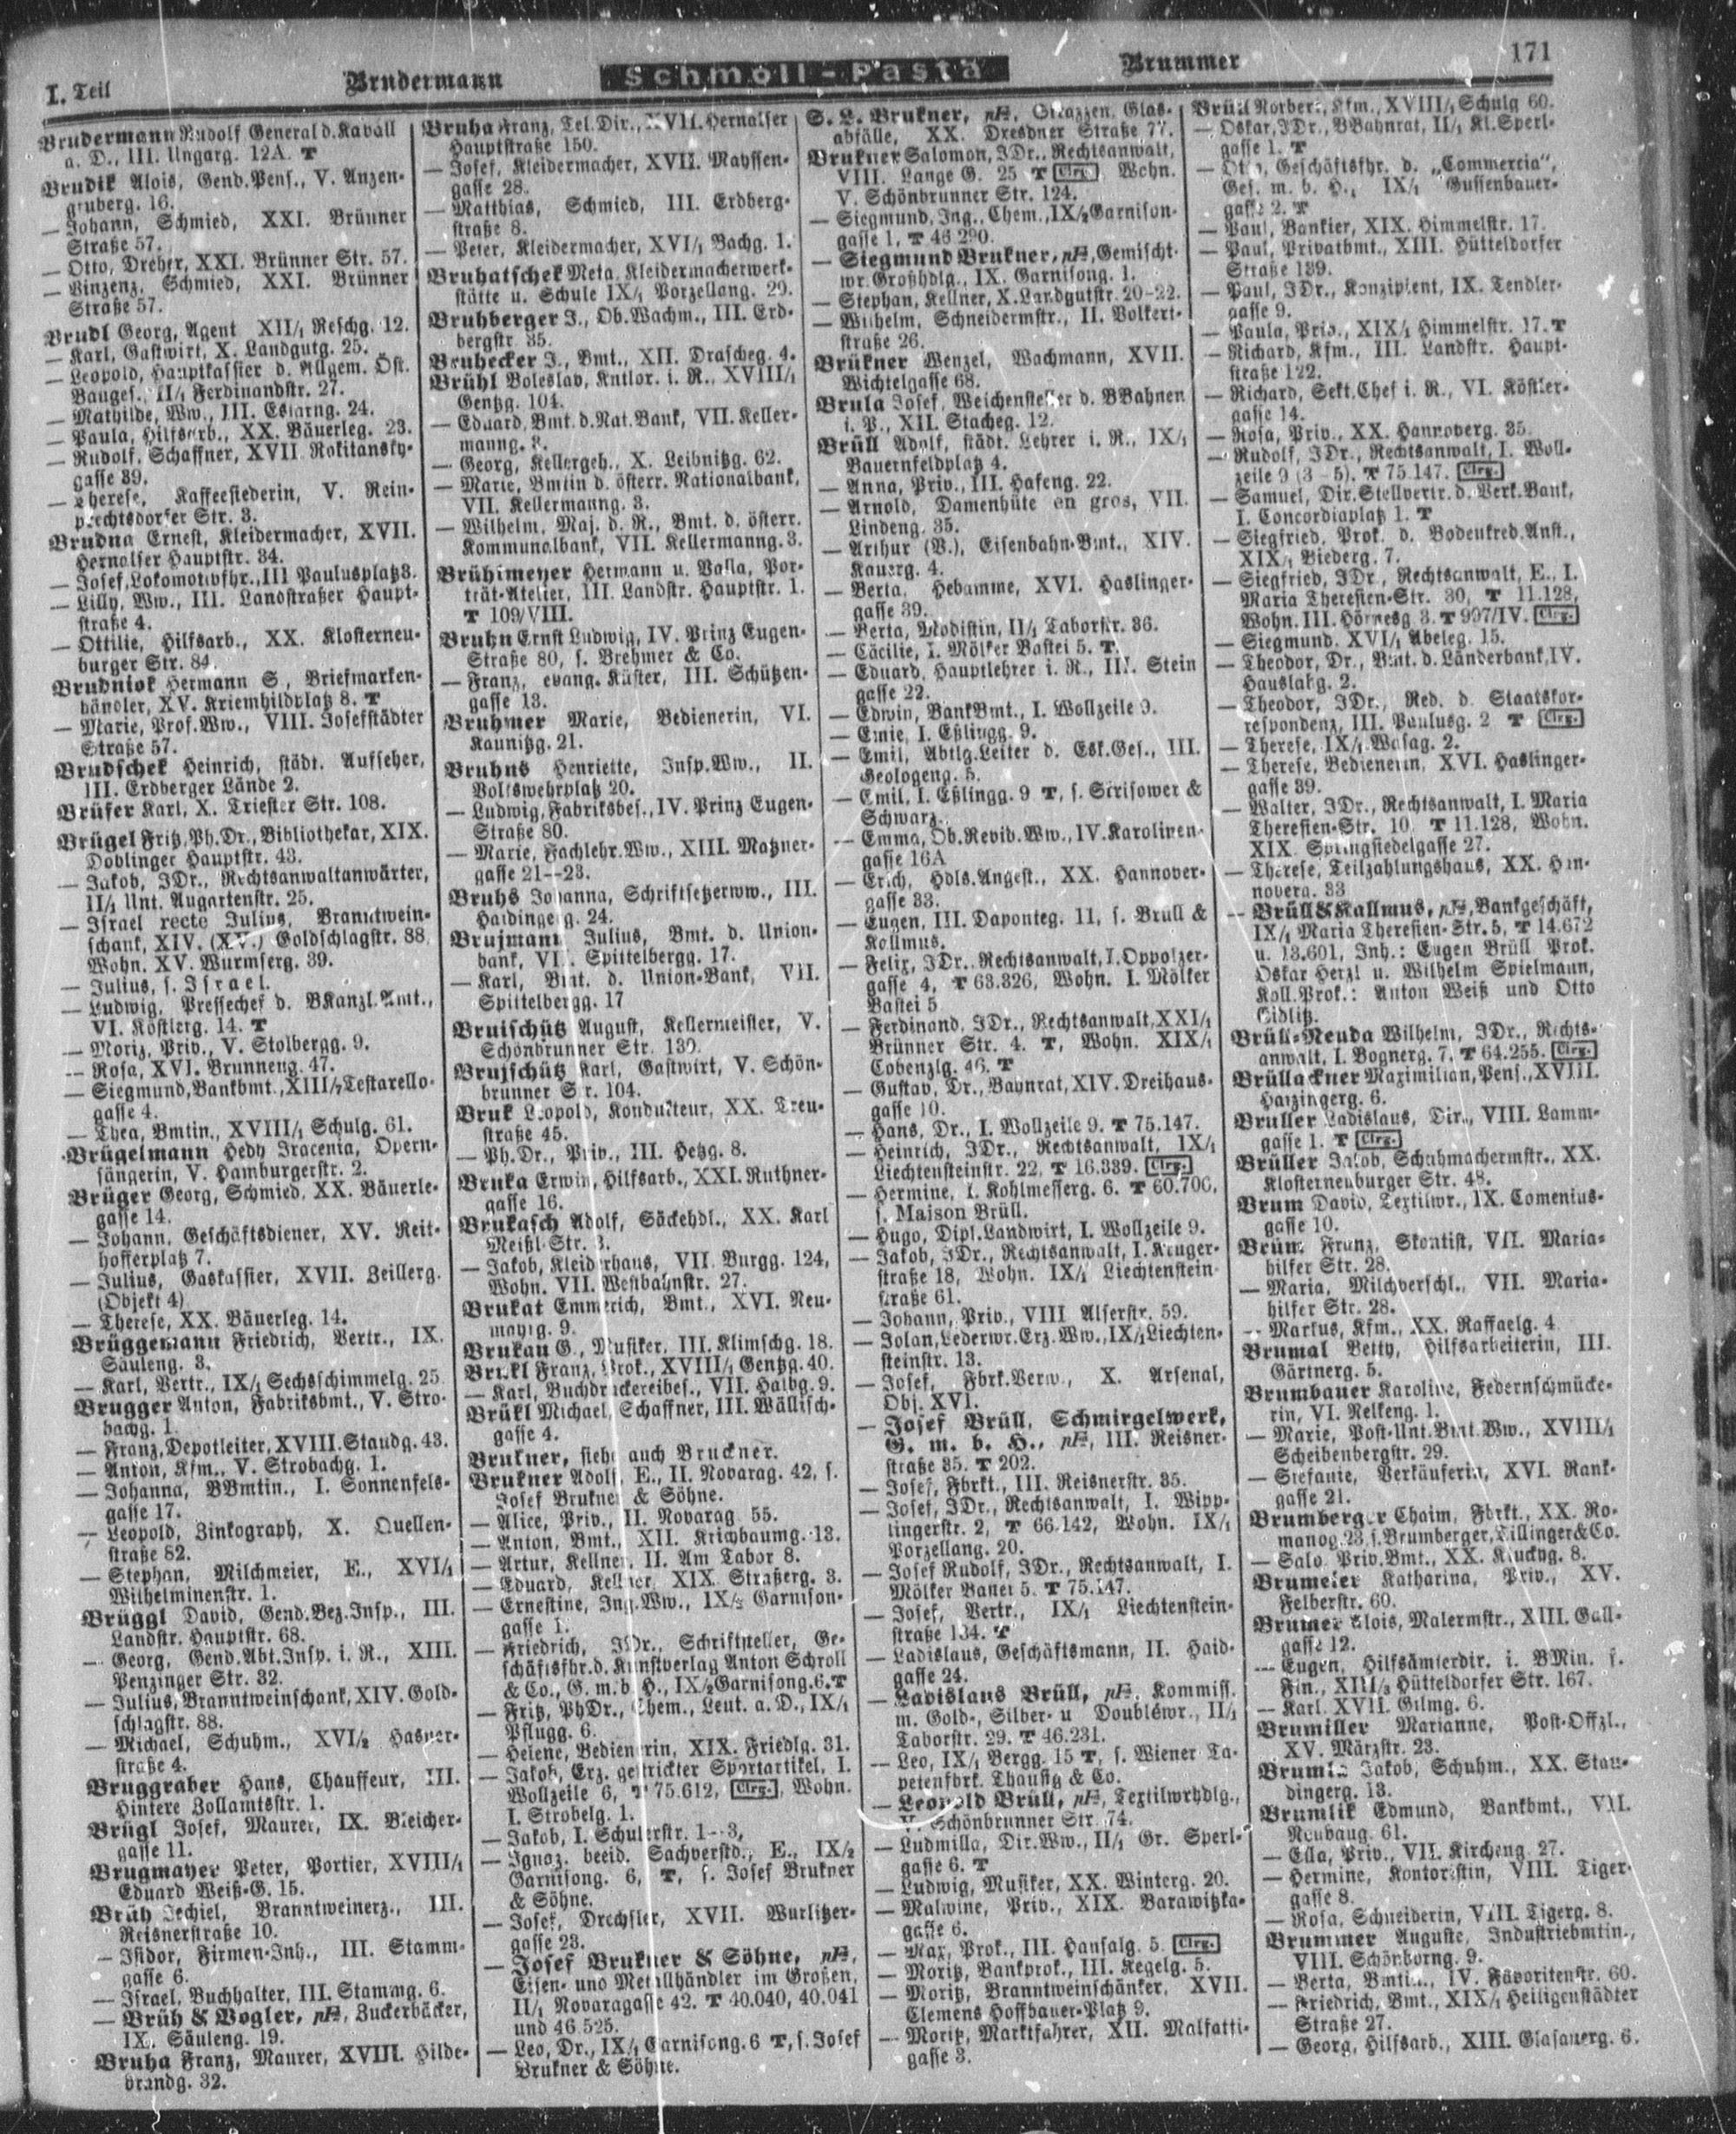 I. Teil
Brudermann
Schmoll-Pasta
Brummer
171
Brudermann Rudolf General d. Kavall
a. D., III. Ungarg. 12A. T
Brudik Alois, Gend.Pens., V. Anzen-
gruberg. 16.
— Johann, Schmied, XXI. Brünner
Straße 57.
— Otto, Dreher, XXI. Brünner Str. 57.
— Vinzenz, Schmied, XXI. Brünner
Straße 57.
Brudl Georg, Agent XII/1 Reschg. 12.
— Karl, Gastwirt, X. Landgutg. 25.
— Leopold, Hauptkassier d. Allgem. Öst.
Bauges., II/1 Ferdinandstr. 27.
— Mathilde, Ww., III. Eslarng. 24.
— Paula, Hilfsarb., XX. Bäuerleg. 23.
— Rudolf, Schaffner, XVII Rokitansky-
gasse 39.
— Therese, Kaffeesiederin, V. Rein-
prechtsdorfer Str. 3.
Brudna Ernest, Kleidermacher, XVII.
Hernalser Hauptstr. 34.
— Josef, Lokomotivfhr., III Paulusplatz 3.
— Lilly, Ww., III. Landstraßer Haupt-
straße 4.
— Ottilie, Hilfsarb., XX. Klosterneu-
burger Str. 84.
Brudniok Hermann S., Briefmarken-
händler, XV. Kriemhildplatz 8. T
— Marie, Prof.Ww., VIII. Josefstädter
Straße 57.
Brudschek Heinrich, städt. Aufseher,
III. Erdberger Lände 2.
Brüfer Karl, X. Triester Str. 108.
Brügel Fritz, Ph.Dr., Bibliothekar, XIX.
Döblinger Hauptstr. 43.
— Jakob, JDr., Rechtsanwaltanwärter,
II/1 Unt. Augartenstr. 25.
— Israel recte Julius, Branntwein-
schank, XIV. (XV.) Goldschlagstr. 88,
Wohn. XV. Wurmserg. 39.
— Julius, s. Israel.
— Ludwig, Pressechef d. BKanzl.Amt.,
VI. Köstlerg. 14. T
— Moriz, Priv., V. Stolbergg. 9.
— Rosa, XVI. Brunneng. 47.
— Siegmund, Bankbmt., XIII/7 Testarello-
gasse 4.
— Thea, Bmtin., XVIII/1 Schulg. 61.
Brügelmann Hedy Iracenia, Opern-
sängerin, V. Hamburgerstr. 2.
Brüger Georg, Schmied, XX. Bäuerle-
gasse 14.
— Johann, Geschäftsdiener, XV. Reit-
hofferplatz 7.
— Julius, Gaskassier, XVII. Zeillerg.
(Objekt 4)
— Therese, XX. Bäuerleg. 14.
Brüggemann Friedrich, Vertr., IX.
Säuleng. 3.
— Karl, Vertr., IX/1 Sechsschimmelg. 25
Brugger Anton, Fabriksbmt., V. Stro-
bachg. 1.
— Franz, Depotleiter, XVIII. Staudg. 43.
— Anton, Kfm., V. Strobachg. 1.
— Johanna, BBmtin., I. Sonnenfels-
gasse 17.
— Leopold, Zinkograph, X. Quellen-
straße 82.
— Stephan, Milchmeier, E., XVI/1
Wilhelminenstr. 1.
Brüggl David, Gend.Bez.Insp., III.
Landstr. Hauptstr. 68.
— Georg, Gend.Abt.Insp. i. R., XIII.
Penzinger Str. 32.
— Julius, Branntweinschank, XIV. Gold-
schlagstr. 88.
— Michael, Schuhm., XVI/2 Hasner-
straße 4.
Bruggraber Hans, Chauffeur, III.
Hintere Zollamtsstr. 1.
Brügl Josef, Maurer, IX. Bleicher-
gasse 11.
Brugmayer Peter, Portier, XVIII/1
Eduard Weiß-G. 15.
Brüh Jechiel, Branntweinerz., III.
Reisnerstraße 10.
— Isidor, Firmen-Inh., III. Stamm-
gasse 6.
— Israel, Buchhalter, III. Stammg. 6.
— Brüh & Vogler, pF, Zuckerbäcker,
IX. Säuleng. 19.
Bruha Franz, Maurer, XVIII. Hilde-
brandg. 32.
Bruha Franz, Tel.Dir., XVII. Hernalser
Hauptstraße 150.
— Josef, Kleidermacher, XVII. Mayssen-
gasse 28.
— Matthias, Schmied, III. Erdberg-
straße 8.
— Peter, Kleidermacher, XVI/1 Bachg. 1.
Bruhatschek Meta, Kleidermacherwerk-
stätte u. Schule IX/1 Porzellang. 29.
Bruhberger J., Ob.Wachm., III. Erd-
bergstr. 35.
Bruhecker J., Bmt., XII. Drascheg. 4.
Brühl Boleslav, Kntlor. i. R., XVIII/1
Gentzg. 104.
— Eduard, Bmt. d. Nat.Bank, VII. Keller-
manng. 3.
— Georg, Kellergeh., X. Leibnitzg. 62.
— Marie, Bmtin d. österr. Nationalbank,
VII. Kellermanng. 3.
— Wilhelm, Maj. d. R., Bmt. d. österr.
Kommunalbank, VII. Kellermanng. 3.
Brühlmeyer Hermann u. Valla, Por-
trät-Atelier, III. Landstr. Hauptstr. 1.
T 109/VIII.
Bruhn Ernst Ludwig, IV. Prinz Eugen-
Straße 80, s. Brehmer & Co.
— Franz, evang. Küster, III. Schützen-
gasse 13.
Bruhmer Marie, Bedienerin, VI.
Kaunitzg. 21.
Bruhns Henriette, Insp.Ww., II.
Volkswehrplatz 20.
— Ludwig, Fabriksbes., IV. Prinz Eugen-
Straße 80.
— Marie, Fachlehr.Ww., XIII. Matzner-
gasse 21--23.
Bruhs Johanna, Schriftsetzerww., III.
Haidingerg. 24.
Brujmann Julius, Bmt. d. Union-
bank, VII. Spittelbergg. 17.
— Karl, Bmt. d. Union-Bank, VII.
Spittelbergg. 17
Bruischütz August, Kellermeister, V.
Schönbrunner Str. 130.
Brujschütz Karl, Gastwirt, V. Schön-
brunner Str. 104.
Bruk Leopold, Kondukteur, XX. Treu-
straße 45.
— Ph.Dr., Priv., III. Hetzg. 8.
Bruka Erwin, Hilfsarb., XXI. Ruthner-
gasse 16.
Brukasch Adolf, Säckehdl., XX. Karl
Meißl-Str. 3.
— Jakob, Kleiderhaus, VII. Burgg. 124,
Wohn. VII. Westbahnstr. 27.
Brukat Emmerich, Bmt., XVI. Neu-
mayrg. 9.
Brukau G., Musiker, III. Klimschg. 18.
Brukl Franz, Prok., XVIII/1 Gentzg. 40.
— Karl, Buchdruckereibes., VII. Halbg. 9.
Brükl Michael, Schaffner, III. Wällisch-
gasse 4.
Brukner, siehe auch Bruckner.
Brukner Adolf E., II. Novarag. 42, s.
Josef Brukner & Söhne.
— Alice, Priv., II. Novarag 55.
— Anton, Bmt., XII. Krichbaumg. 13.
— Artur, Kellner, II. Am Tabor 8.
— Eduard, Kellner, XIX. Straßerg. 3.
— Ernestine, Ing.Ww., IX/2 Garnison-
gasse 1.
— Friedrich, JDr., Schriftsteller, Ge-
schäftsfhr. d. Kunstverlag Anton Schroll
& Co., G. m. b. H., IX/2 Garnisong. 6. T
— Fritz, PhDr., Chem., Leut. a. D., IX/1
Pflugg. 6.
— Helene, Bedienerin, XIX. Friedlg. 31.
— Jakob, Erz. gestrickter Sportartikel, I.
Wollzeile 6, T 75.612, Clrg., Wohn.
I. Strobelg. 1.
— Jakob, I. Schulerstr. 1--3,
— Ignaz, beeid. Sachverstd., E., IX/2
Garnisong. 6, T, s. Josef Brukner
& Söhne.
— Josef, Drechsler, XVII. Wurlitzer-
gasse 23.
— Josef Brukner & Söhne, pF,
Eisen- und Metallhändler im Großen,
II/1 Novaragasse 42. T 40.040, 40.041
und 46.525.
— Leo, Dr., IX/1 Garnisong. 6 T, s. Josef
Brukner & Söhne.
S. L. Brukner, pF, Glas-
abfälle, XX. Dresdner Straße 77.
Brukner Salomon, JDr., Rechtsanwalt,
VIII. Lange G. 25 T Clrg., Wohn.
V. Schönbrunner Str. 124.
— Siegmund, Ing., Chem., IX/2 Garnison-
gasse 1, T 46.290.
— Siegmund Brukner, pF, Gemischt-
wr. Großhdlg., IX. Garnisong. 1.
— Stephan, Kellner, X. Landgutstr. 20-22.
— Wilhelm, Schneidermstr., II. Volkert-
straße 26.
Brükner Wenzel, Wachmann, XVII.
Wichtelgasse 68.
Brula Josef, Weichensteller d. BBahnen
i. P., XII. Stacheg. 12.
Brüll Adolf, städt. Lehrer i. R., IX/1
Bauernfeldplatz 4.
— Anna, Priv., III. Hafeng. 22.
— Arnold, Damenhüte en gros, VII.
Lindeng. 35.
— Arthur (B.), Eisenbahn-Bmt., XIV.
Kauerg. 4.
— Berta, Hebamme, XVI. Haslinger-
gasse 39.
— Berta, Modistin, II/1 Taborstr. 36.
— Cäcilie, I. Mölker Bastei 5. T
— Eduard, Hauptlehrer i. R., III. Stein
gasse 22.
— Edwin, BankBmt., I. Wollzeile 9.
— Emie, I. Eßlingg. 9.
— Emil, Abtlg.Leiter d. Esk.Ges., III.
Geologeng. 5.
— Emil, I. Eßlingg. 9 T, s. Strisower &
Schwarz.
— Emma, Ob.Revid.Ww., IV. Karolinen-
gasse 16A
— Erich, Hdls.Angest., XX. Hannover-
gasse 33.
— Eugen, III. Daponteg. 11, s. Brüll &
Kallmus.
— Felix, JDr., Rechtsanwalt, I. Oppolzer-
gasse 4, T 63.326, Wohn. I. Mölker
Bastei 5
— Ferdinand, JDr., Rechtsanwalt, XXI/1
Brünner Str. 4. T, Wohn. XIX/1
Cobenzlg. 46. T
— Gustav, Dr., Bahnrat, XIV. Dreihaus-
gasse 10.
— Hans, Dr., I. Wollzeile 9. T 75.147.
— Heinrich, JDr., Rechtsanwalt, IX/1
Liechtensteinstr. 22, T 16.339. Clrg.
— Hermine, I. Kohlmesserg. 6. T 60.700,
s. Maison Brüll.
— Hugo, Dipl.Landwirt, I. Wollzeile 9.
— Jakob, JDr., Rechtsanwalt, I. Kruger-
straße 18, Wohn. IX/1 Liechtenstein-
straße 61.
— Johann, Priv., VIII Alserstr. 59.
— Jolan, Lederwr.Erz.Ww., IX/1 Liechten-
steinstr. 13.
— Josef, Fbrk.Verw., X. Arsenal,
Obj. XVI.
— Josef Brüll, Schmirgelwerk,
G. m. b. H., pF, III. Reisner-
straße 35. T 202.
— Josef, Fbrkt., III. Reisnerstr. 35.
— Josef, JDr., Rechtsanwalt, I. Wipp-
lingerstr. 2, T 66.142, Wohn. IX/1
Porzellang. 20.
— Josef Rudolf, JDr., Rechtsanwalt, I.
Mölker Bastei 5. T 75.147.
— Josef, Vertr., IX/1 Liechtenstein-
straße 134. T
— Ladislaus, Geschäftsmann, II. Haid-
gasse 24.
— Ladislaus Brüll, pF, Kommiss.
m. Gold-, Silber- u Doubléwr., II/1
Taborstr. 29. T 46.231.
— Leo, IX/1 Bergg. 15 T, s. Wiener Ta-
petenfbrk. Thausig & Co.
— Leopold Brüll, pF, Textilwrhdlg.,
V. Schönbrunner Str. 74.
— Ludmilla, Dir.Ww., II/1 Gr. Sperl-
gasse 6. T
— Ludwig, Musiker, XX. Winterg. 20.
— Malwine, Priv., XIX. Barawitzka-
gasse 6.
— Max, Prok., III. Hansalg. 5. Clrg.
— Moritz, Bankprok., III. Kegelg. 5.
— Moritz, Branntweinschänker, XVII.
Clemens Hoffbauer-Platz 9.
— Moritz, Marktfahrer, XII. Malfatti-
gasse 3.
Brüll Norbert, Kfm., XVIII/1 Schulg 60.
— Oskar, JDr., BBahnrat, II/1 Kl. Sperl-
gasse 1. T
— Otto, Geschäftsfhr. d. „Commercia“,
Ges. m. b. H., IX/1 Gussenbauer-
gasse 2. T
— Paul, Bankier, XIX. Himmelstr. 17.
— Paul, Privatbmt., XIII. Hütteldorfer
Straße 189.
— Paul, JDr., Konzipient, IX. Tendler-
gasse 9.
— Paula, Priv., XIX/1 Himmelstr. 17. T
— Richard, Kfm., III. Landstr. Haupt-
straße 122.
— Richard, Sekt.Chef i. R., VI. Köstler-
gasse 14.
— Rosa, Priv., XX. Hannoverg. 35.
— Rudolf, JDr., Rechtsanwalt, I. Woll-
zeile 9 (3–5). T 75.147. Clrg.
— Samuel, Dir.Stellvertr. d. Verk.Bank,
I. Concordiaplatz 1. T
— Siegfried, Prok. d. Bodenkred.Anst.,
XIX/1 Biederg. 7.
— Siegfried, JDr., Rechtsanwalt, E., I.
Maria Theresien-Str. 30, T 11.128,
Wohn. III. Hörnesg 3. T 997/IV. Clrg.
— Siegmund. XVI/1 Abeleg. 15.
— Theodor, Dr., Bmt. d. Länderbank, IV.
Hauslabg. 2.
— Theodor, JDr., Red. d. Staatskor-
respondenz, III. Paulusg. 2 T Clrg.
— Therese, IX/1 Wasag. 2.
— Therese, Bedienerin, XVI. Haslinger-
gasse 39.
— Walter, JDr., Rechtsanwalt, I. Maria
Theresien-Str. 10. T 11.128, Wohn.
XIX. Springsiedelgasse 27.
— Therese, Teilzahlungshaus, XX. Han-
noverg. 33
— Brüll & Kallmus, pF, Bankgeschäft,
IX/1 Maria Theresien-Str. 5, T 14.672
u. 13.601, Inh.: Eugen Brüll Prok.
Oskar Herzl u. Wilhelm Spielmann,
Koll.Prok.: Anton Weiß und Otto
Gidlitz.
Brüll-Neuda Wilhelm, JDr., Rechts-
anwalt, I. Bognerg. 7. T 64.255. Clrg.
Brüllackner Maximilian, Pens., XVIII.
Haizingerg. 6.
Bruller Ladislaus, Dir., VIII. Lamm-
gasse 1. T Clrg.
Brüller Jakob, Schuhmachermstr., XX.
Klosterneuburger Str. 48.
Brum David, Textilwr., IX. Comenius-
gasse 10.
Brüm Franz, Skontist, VII. Maria-
hilfer Str. 28.
— Maria, Milchverschl., VII. Maria-
hilfer Str. 28.
— Markus, Kfm., XX. Raffaelg. 4
Brumal Betty, Hilfsarbeiterin, III.
Gärtnerg. 5.
Brumbauer Karoline, Federnschmücke-
rin, VI. Nelkeng. 1.
— Marie, Post-Unt.Bmt.Ww., XVIII/1
Scheibenbergstr. 29.
— Stefanie, Verkäuferin, XVI. Rank-
gasse 21.
Brumberger Chaim, Fbrkt., XX. Ro-
manog. 23, s. Brumberger, Dillinger & Co.
— Salo, Priv.Bmt., XX. Kluckyg. 8.
Brumeier Katharina, Priv., XV.
Felberstr. 60.
Brumer Alois, Malermstr., XIII. Gall-
gasse 12.
— Eugen, Hilfsämterdir. i. BMin. f.
Fin., XIII/3 Hütteldorfer Str. 167.
— Karl XVII. Gilmg. 6.
Brumiller Marianne, Post-Offzl.,
XV. Märzstr. 23.
Jakob, Schuhm., XX. Stau-
dingerg. 13.
Brumlik Edmund, Bankbmt., VII.
Neubaug. 61.
— Ella, Priv., VII. Kircheng. 27.
— Hermine, Kontoristin, VIII. Tiger-
gasse 8.
— Rosa, Schneiderin, VIII. Tigerg. 8.
Brummer Auguste, Industriebmtin.,
VIII. Schönborng. 9.
— Berta, Bmtin., IV. Favoritenstr. 60.
— Friedrich, Bmt., XIX/1 Heiligenstädter
Straße 27.
— Georg, Hilfsarb., XIII. Glasauerg. 6.